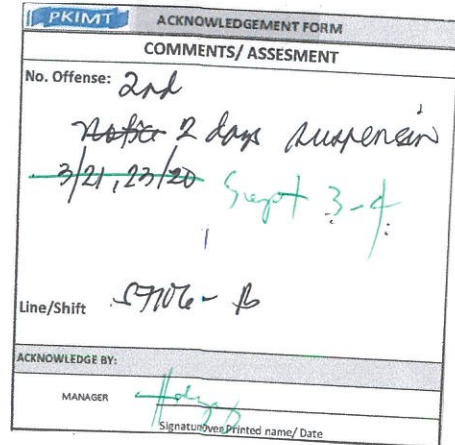 PKIMT ACKNOWLEDGEMENT FORM
COMMENTS/ ASSESMENT
No. Offense: 2nd
2 days suspension
3/21, 23/20 Sept 3-4
Line/Shift
ACKNOWLEDGE BY:
MANAGER
Signatureover Printed name/ Date